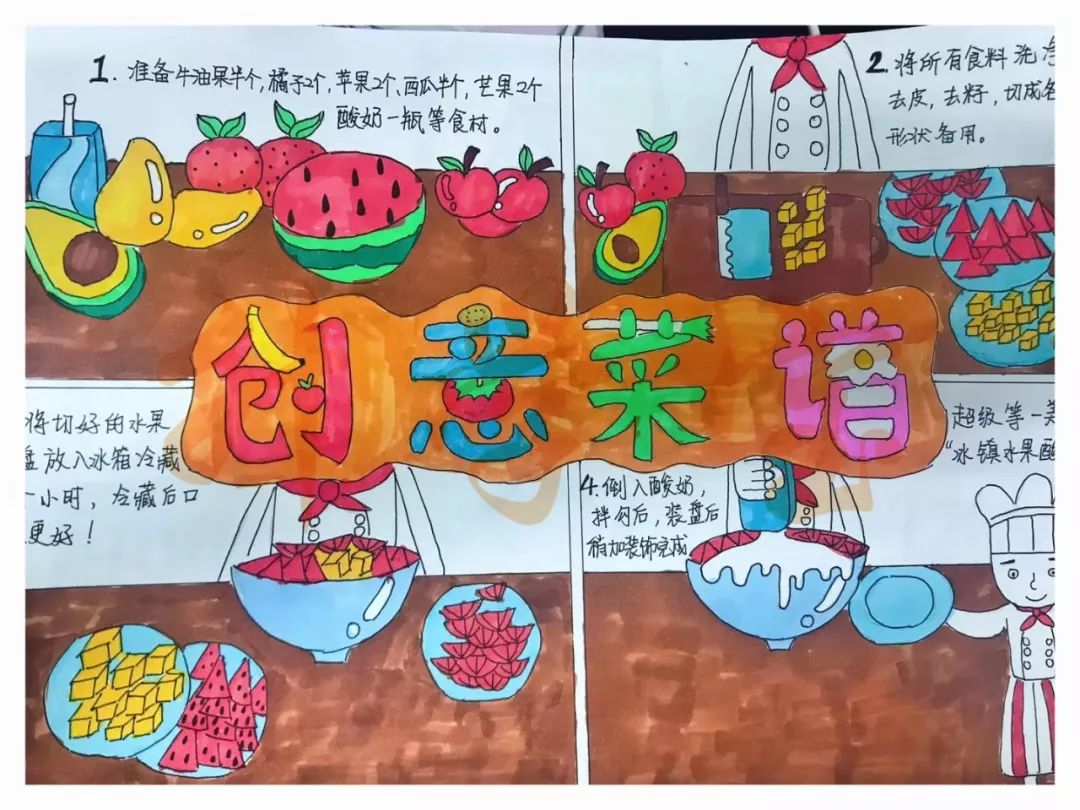 1. 准备牛油果半个,橘子2个,苹果2个、西瓜半个,芒果2个
酸奶一瓶等食材。
2. 将所有食料洗净
去皮,去籽,切成
形状备用。
创意菜谱
将切好的水果
盘放入冰箱冷藏
一小时,冷藏后口
更好!
4. 倒入酸奶,
拌匀后,装盘后
稍加装饰完成
超级等一
“冰镇水果